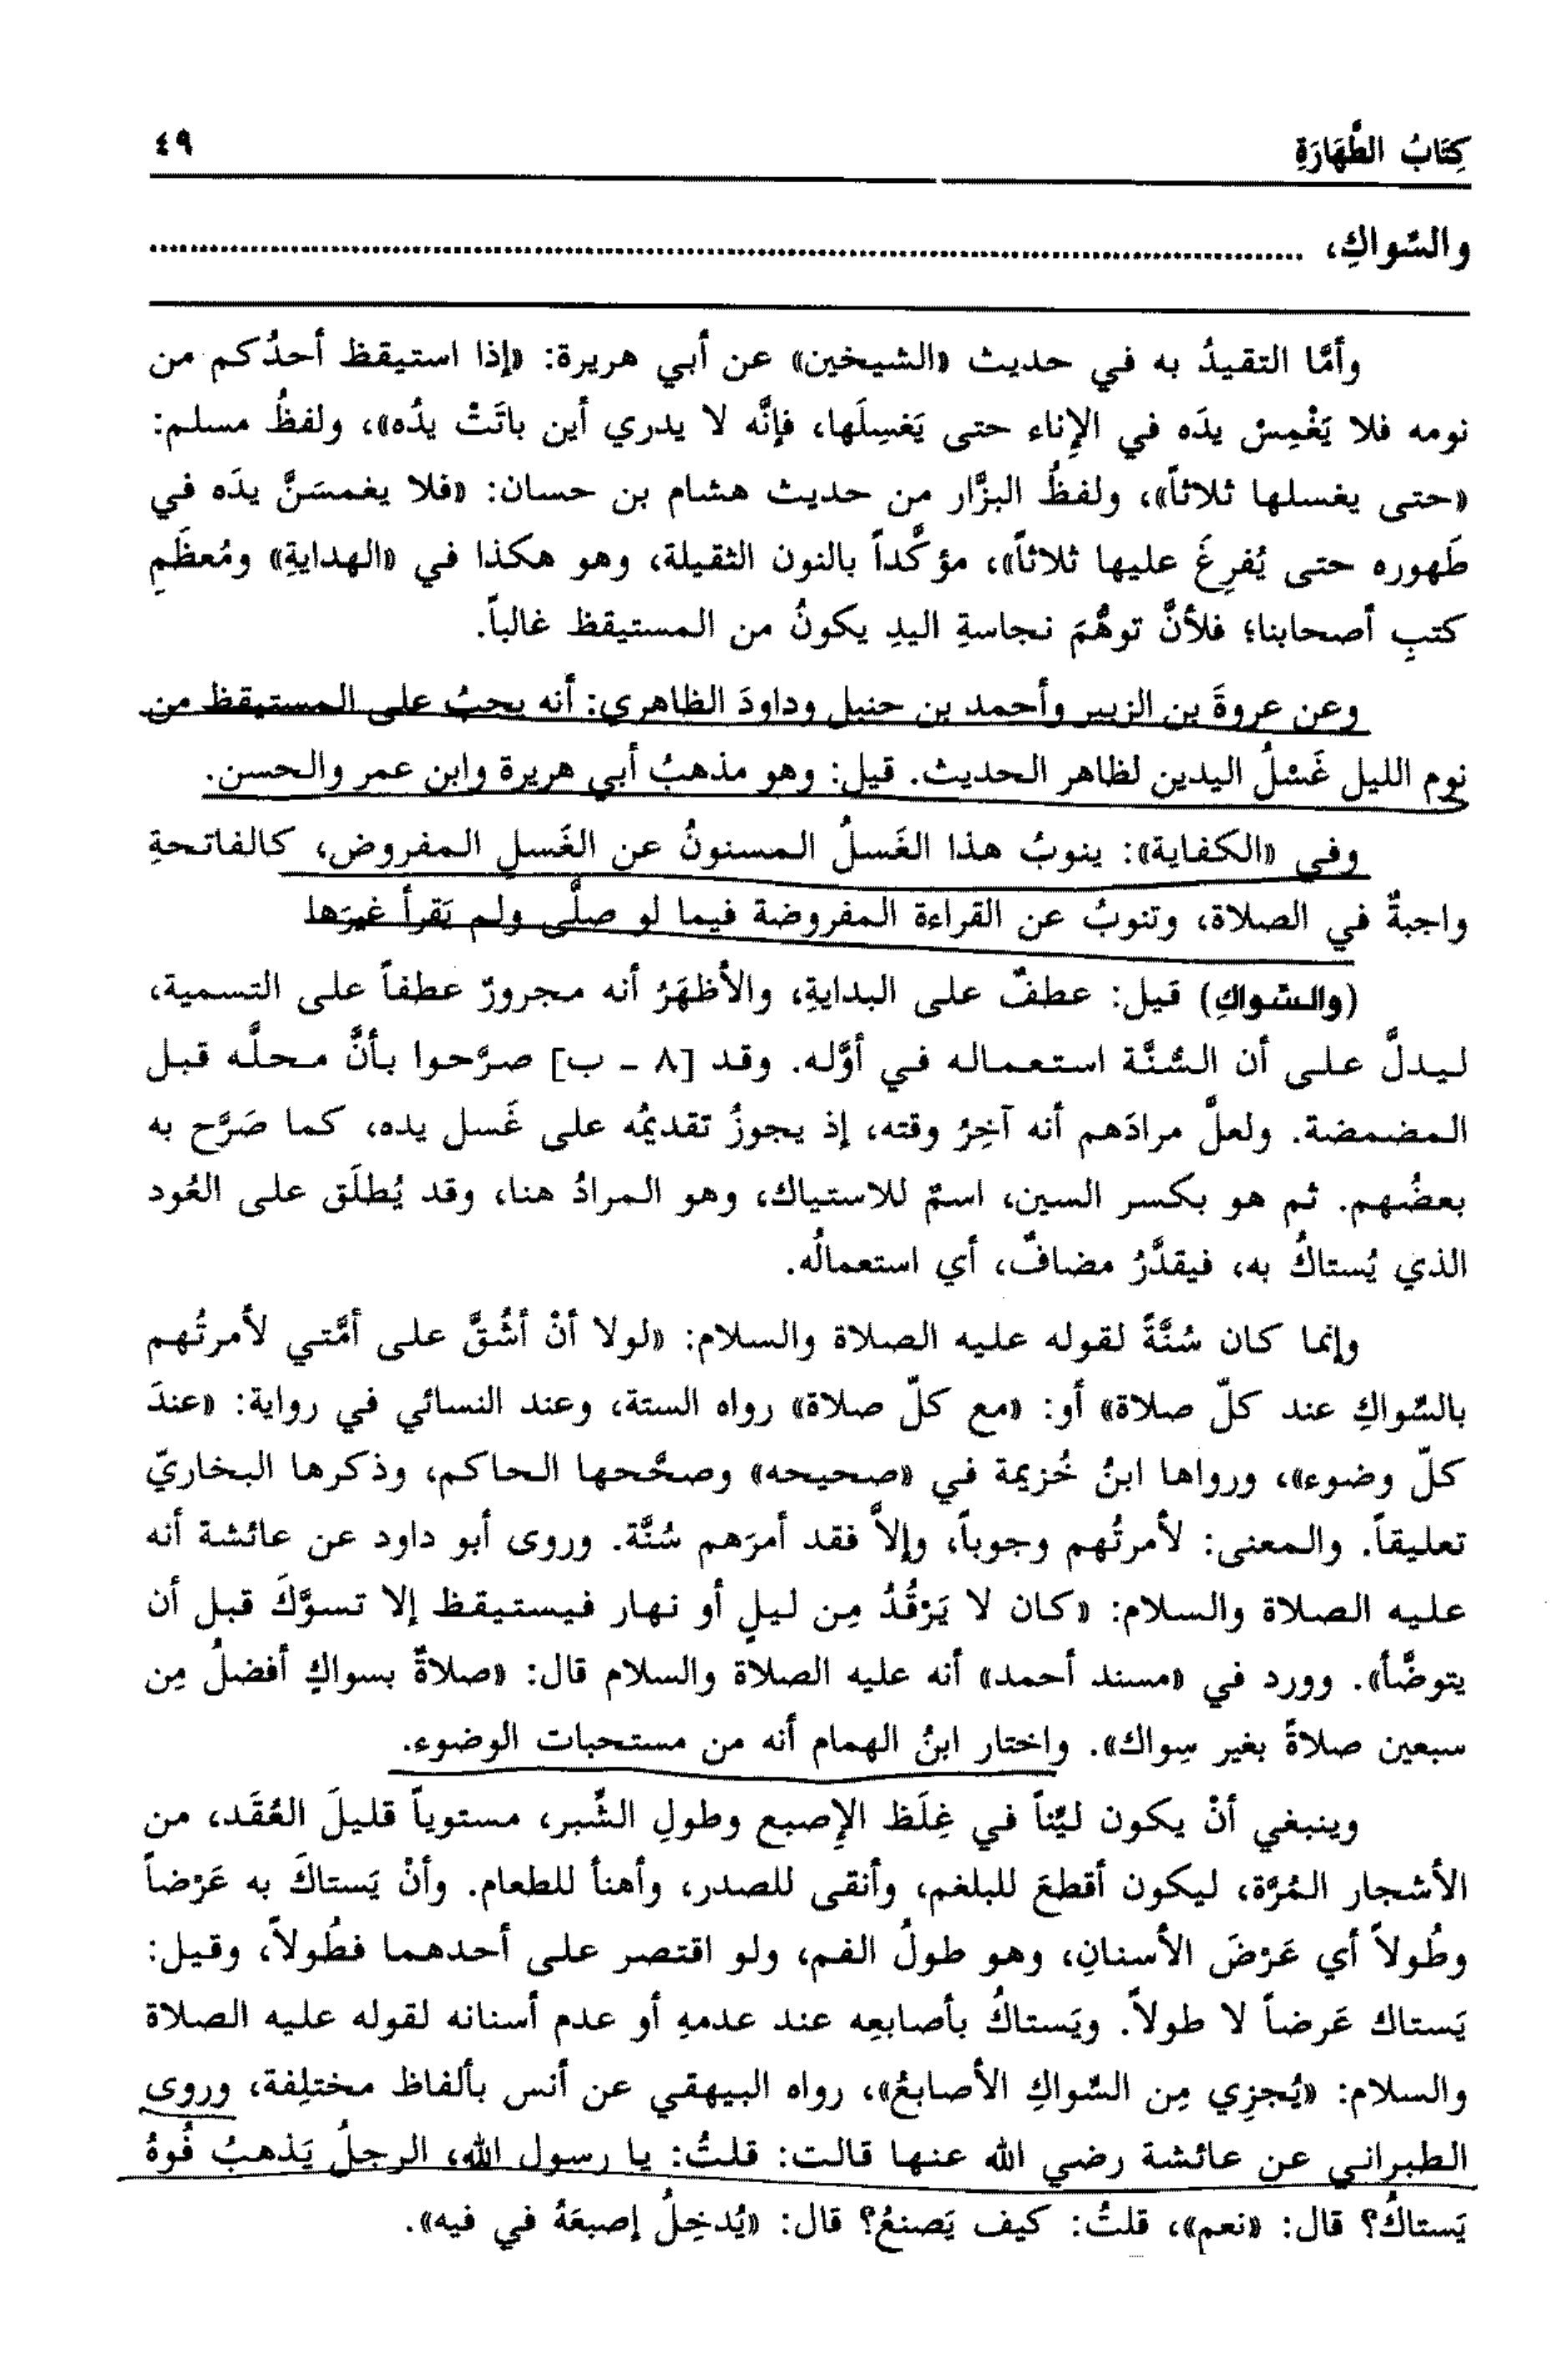 كِتَابُ الطَّهَارَةِ ٤٩
والسِّواكِ، ..........
وأمَّا التقيدُ به في حديث «الشيخين» عن أبي هريرة: «إذا استيقظ أحدُكم من
نومه فلا يَغْمِسْ يدَه في الإِناء حتى يَغسِلَها، فإنَّه لا يدري أين باتَتْ يدُه»، ولفظُ مسلم:
«حتى يغسلها ثلاثاً»، ولفظُ البزَّار من حديث هشام بن حسان: «فلا يغمسَنَّ يدَه في
طَهوره حتى يُفرِغَ عليها ثلاثاً»، مؤكَّداً بالنون الثقيلة، وهو هكذا في «الهدايةِ» ومُعظَمِ
كتبِ أصحابنا؛ فلأنَّ توهُّمَ نجاسةِ اليدِ يكونُ من المستيقظ غالباً.
وعن عروةَ بن الزبير وأحمد بن حنبل وداودَ الظاهري: أنه يجبُ على المستيقظ من
نوم الليل غَسْلُ اليدين لظاهر الحديث. قيل: وهو مذهبُ أبي هريرة وابن عمر والحسن.
وفي «الكفاية»: ينوبُ هذا الغَسلُ المسنونُ عن الغَسلِ المفروض، كالفاتحةِ
واجبةٌ في الصلاة، وتنوبُ عن القراءة المفروضة فيما لو صلَّى ولم يَقرأ غيرَها
(والسِّواكِ) قيل: عطفٌ على البدايةِ، والأظهَرُ أنه مجرورٌ عطفاً على التسمية،
ليدلَّ على أن السُّنَّة استعماله في أوَّله. وقد [٨ - ب] صرَّحوا بأنَّ محلَّه قبل
المضمضة. ولعلَّ مرادَهم أنه آخِرُ وقته، إذ يجوزُ تقديمُه على غَسل يده، كما صَرَّح به
بعضُهم. ثم هو بكسر السين، اسمٌ للاستياك، وهو المرادُ هنا، وقد يُطلَق على العُود
الذي يُستاكُ به، فيقدَّرُ مضافٌ، أي استعمالُه.
وإنما كان سُنَّةً لقوله عليه الصلاة والسلام: «لولا أنْ أشُقَّ على أمَّتي لأمرتُهم
بالسِّواكِ عند كلّ صلاة» أو: «مع كلّ صلاة» رواه الستة، وعند النسائي في رواية: «عندَ
كلّ وضوء»، ورواها ابنُ خُزيمة في «صحيحه» وصحَّحها الحاكم، وذكرها البخاريّ
تعليقاً. والمعنى: لأمرتُهم وجوباً، وإلاَّ فقد أمرَهم سُنَّة. وروى أبو داود عن عائشة أنه
عليه الصلاة والسلام: «كان لا يَرْقُدُ مِن ليلٍ أو نهار فيستيقظ إلا تسوَّكَ قبل أن
يتوضَّأ». وورد في «مسند أحمد» أنه عليه الصلاة والسلام قال: «صلاةٌ بسواكٍ أفضلُ مِن
سبعين صلاةً بغير سِواك». واختار ابنُ الهمام أنه من مستحبات الوضوء.
وينبغي أنْ يكون ليِّناً في غِلَظ الإِصبع وطولِ الشِّبر، مستوياً قليلَ العُقَد، من
الأشجار المُرَّة، ليكون أقطعَ للبلغم، وأنقى للصدر، وأهنأ للطعام. وأنْ يَستاكَ به عَرْضاً
وطُولاً أي عَرْضَ الأسنانِ، وهو طولُ الفم، ولو اقتصر على أحدهما فطُولاً، وقيل:
يَستاك عَرضاً لا طولاً. ويَستاكُ بأصابعِه عند عدمهِ أو عدم أسنانه لقوله عليه الصلاة
والسلام: «يُجزِي مِن السِّواكِ الأصابعُ»، رواه البيهقي عن أنس بألفاظ مختلِفة، وروى
الطبراني عن عائشة رضي الله عنها قالت: قلتُ: يا رسول الله، الرجلُ يَذهبُ فُوهُ
يَستاكُ؟ قال: «نعم»، قلتُ: كيف يَصنعُ؟ قال: «يُدخِلُ إصبعَهُ في فيه».